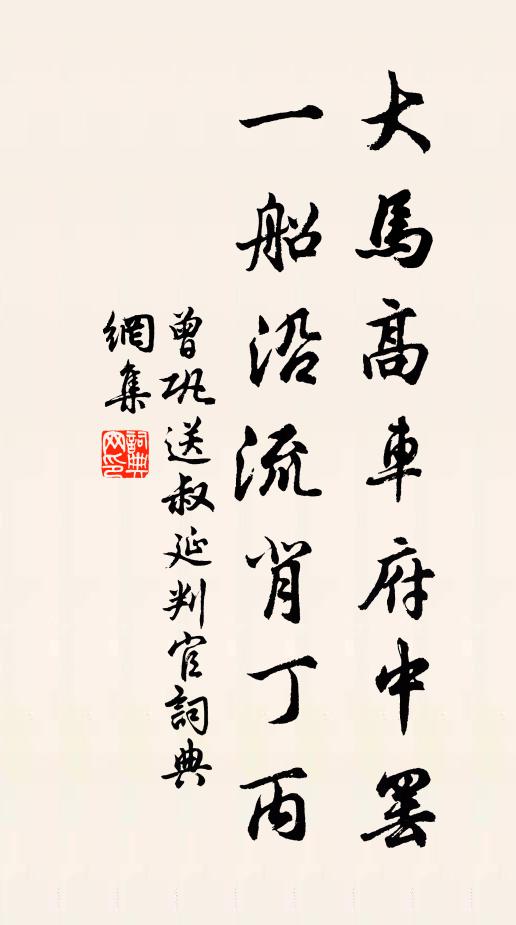 大馬高車府中罷
一船沿流背丁丙
曾巩送叔延判官詞典
網集
詞典網印